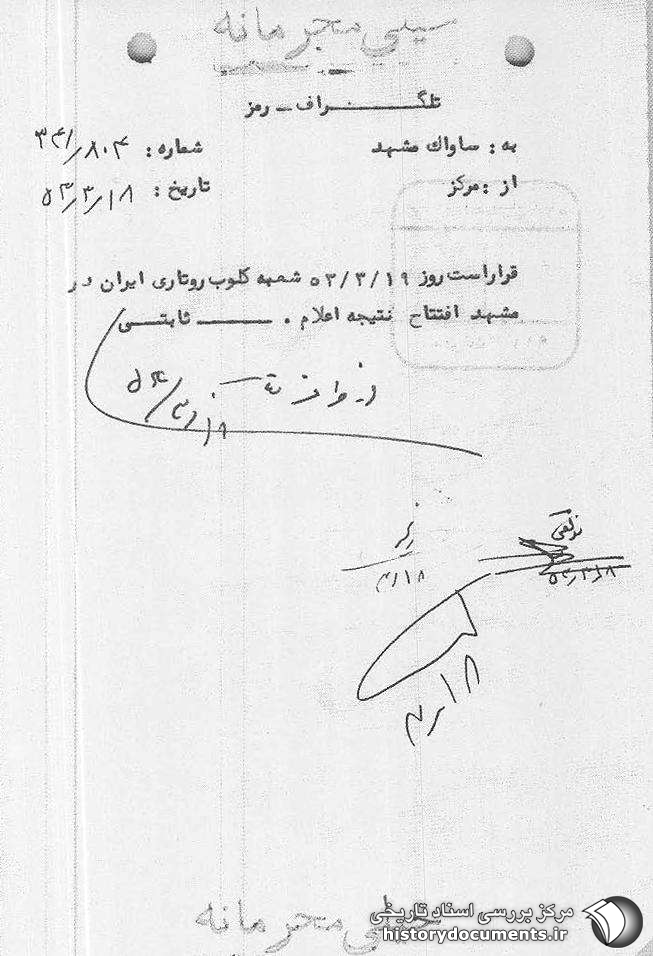 خیلی محرمانه
تلگـــراف ـ رمز
به : ساواک مشهد
شماره : ۳۴۱/۸۰۴
از : مرکز
تاریخ : ۵۳/۳/۱۸
قراراست روز ۵۳/۳/۱۹ شعبه کلوب روتاری ایران در
مشهد افتتاح نتیجه اعلام . ــــــ ثابتـــی
۵۳/۳/۱۸
۳/۱۸
۵۳/۳/۱۸
۳/۱۸
خیلی محرمانه
مرکز بررسی اسناد تاریخی
historydocuments.ir